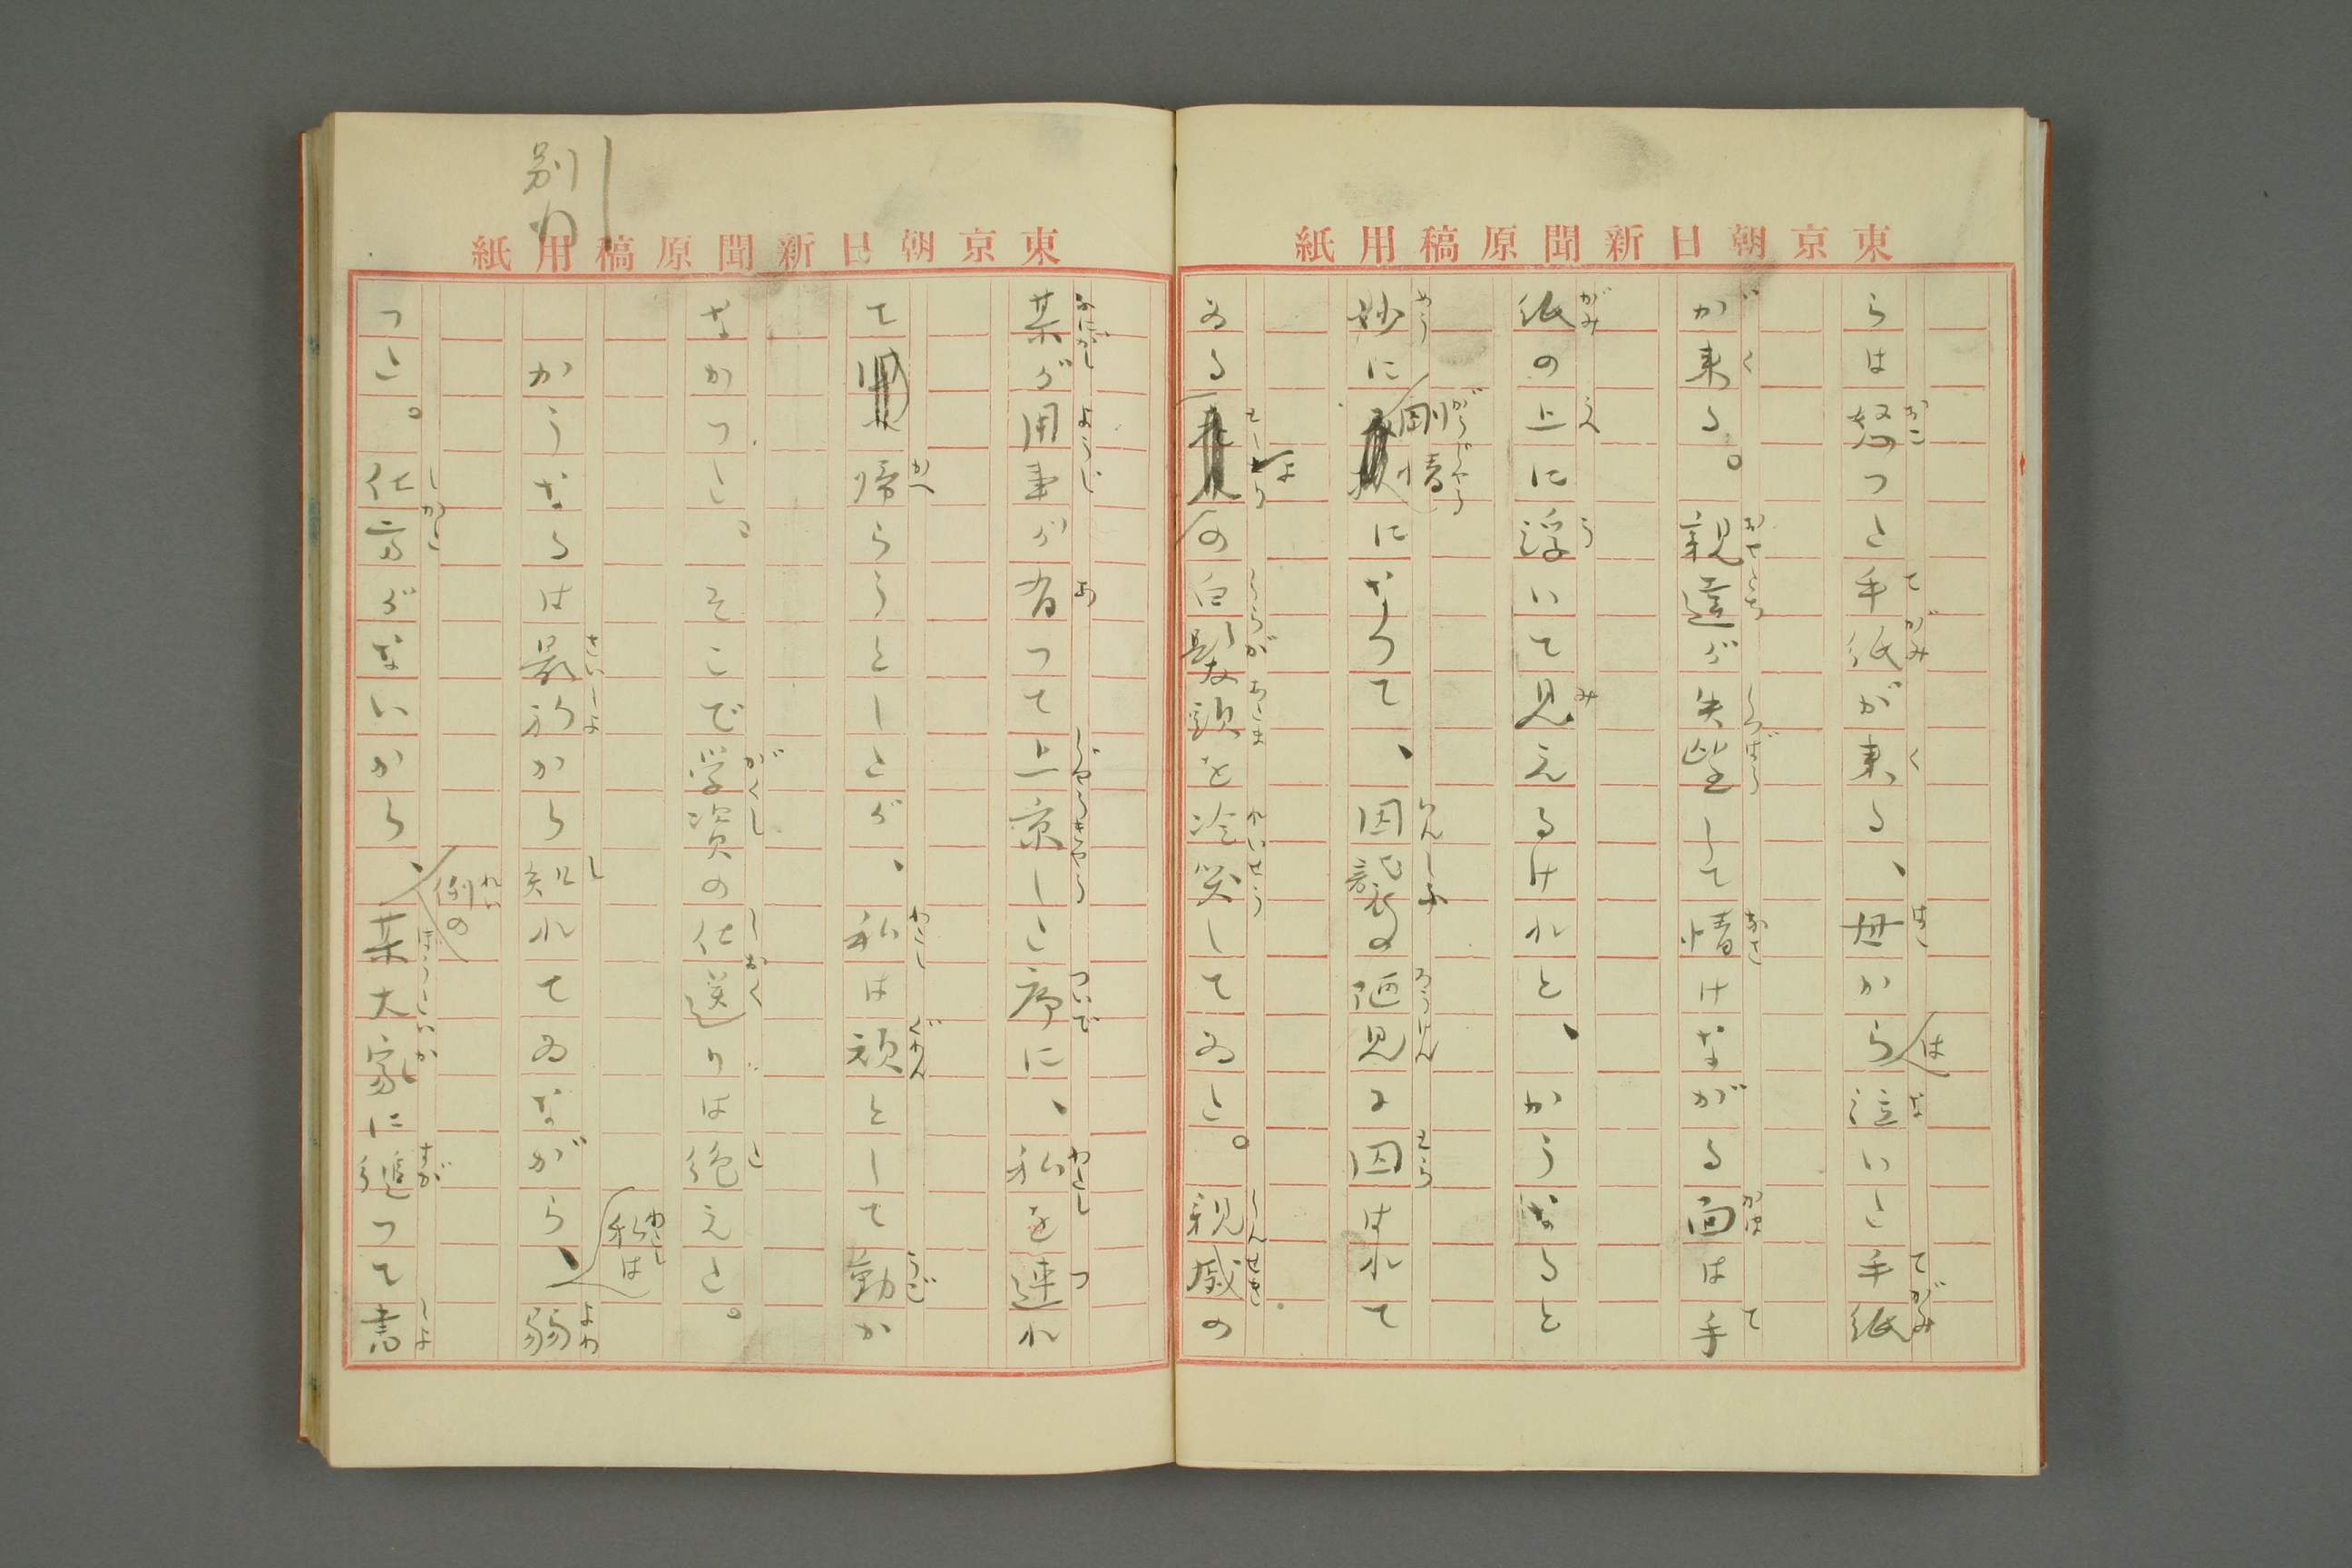 東京朝日新聞原稿用紙
らは怒つた手紙が来る、母からは泣いた手紙
が来る。親達が失望して情けながる面は手
紙の上に浮いて見えるけれど、かうなると
妙に剛情になつて、因襲の陋見に囚はれて
ゐるの白髪頭を冷笑してゐた。親戚の
東京朝日新聞原稿用紙
某が用事が有つて上京した序に、私を連れ
て帰らうとしたが、私は頑として動か
なかつた。そこで学資の仕送りは絶えた。
かうなるは最初から知れてゐながら、私は弱
つた。仕方がないから、例の某大家に縋つて書